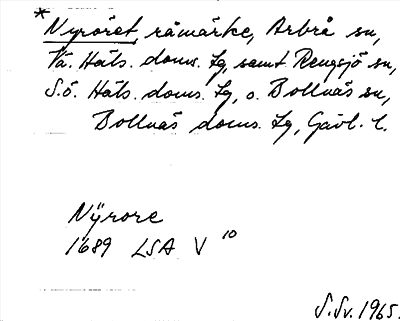 * Nyröret, råmärke, Arbrå sn,
Vä. Häls. doms. Lg, samt Rengsjö sn,
S.ö. Häls. doms. Lg, o. Bollnäs sn,
Bollnäs doms. Lg, Gävl. l.
Nÿrore
1689 LSA V 10
S.Sv. 1965.